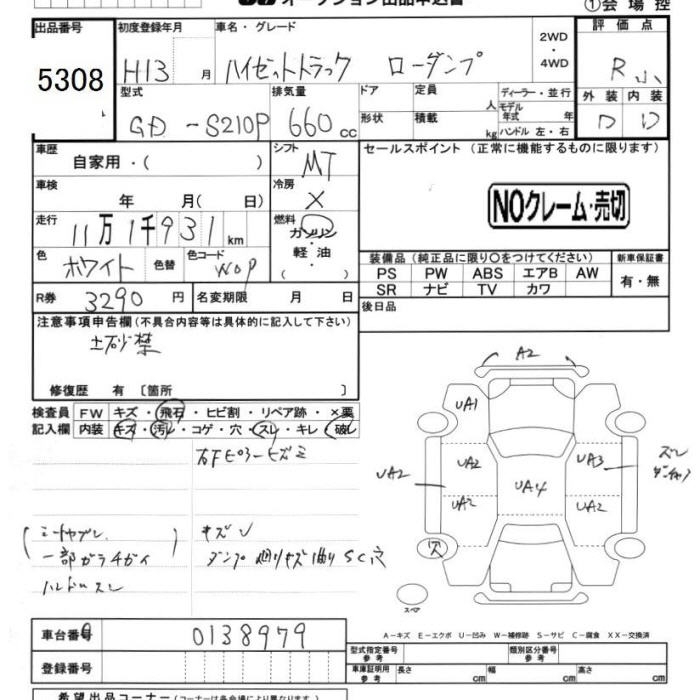 オークション出品申込書
①会場控
出品番号 初度登録年月 車名・グレード 2WD・4WD 評価点
5308 H13 月 ハイゼットトラック ローダンプ R
型式 排気量 ドア 定員 人 ディーラー・並行 外装 内装
GD-S210P 660 cc 形状 積載 kg モデル年式 年 ハンドル 左・右 D D
車歴 シフト セールスポイント(正常に機能するものに限ります)
自家用・( ) MT
車検 冷房 NOクレーム・売切
年 月( 日) ×
走行 燃料
11万1千931km ガソリン・軽油・( )
色 ホワイト 色替 色コード W09 装備品(純正品に限り〇をつけてください) 新車保証書
PS PW ABS エアB AW 有・無
SR ナビ TV カワ
R券 3290円 名変期限 月 日 後日品
注意事項申告欄(不具合内容等は具体的に記入して下さい)
土砂禁
修復歴 有〔箇所 〕
検査員 FW キズ・飛石・ヒビ割・リペア跡・×要
記入欄 内装 キズ・汚レ・コゲ・穴・スレ・キレ・破レ
A2
UA1
UA2 UA3 スレ
UA2 UA4
UA2 UA2
穴
スペア
シートヤブレ キズU
一部ガラチガイ
ハンドルスレ
A-キズ E-エクボ U-凹み W-補修跡 S-サビ C-腐食 XX-交換済
車台番号 0138979
型式指定番号 参考 類別区分番号 参考
登録番号 車庫証明用 参考 長さ cm 幅 cm 高さ cm
希望出品コーナー(コーナーは各会場により異なります)